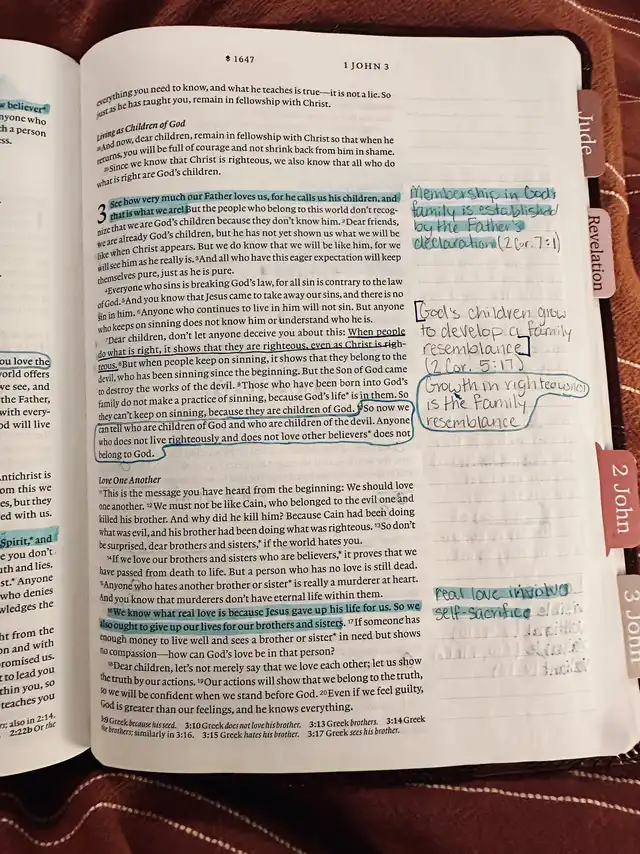 w believer*
nyone who
ch a person
ss.
ou love the
orld offers
we see, and
the Father,
with every-
od will live
Antichrist is
om this we
es, but they
ed with us.
Spirit,* and
e you don't
uth and lies.
st.* Anyone
who denies
wledges the
ht from the
on and with
romised us.
t to lead you
thin you, so
teaches you
rs; also in 2:14.
2:22b Or the
1647
1 JOHN 3
everything you need to know, and what he teaches is true—it is not a lie. So
just as he has taught you, remain in fellowship with Christ.
Living as Children of God
28And now, dear children, remain in fellowship with Christ so that when he
returns, you will be full of courage and not shrink back from him in shame.
29Since we know that Christ is righteous, we also know that all who do
what is right are God's children.
3 See how very much our Father loves us, for he calls us his children, and
that is what we are! But the people who belong to this world don't recog-
nize that we are God's children because they don't know him. 2Dear friends,
we are already God's children, but he has not yet shown us what we will be
like when Christ appears. But we do know that we will be like him, for we
will see him as he really is. 3And all who have this eager expectation will keep
themselves pure, just as he is pure.
4Everyone who sins is breaking God's law, for all sin is contrary to the law
of God. 5And you know that Jesus came to take away our sins, and there is no
sin in him. 6Anyone who continues to live in him will not sin. But anyone
who keeps on sinning does not know him or understand who he is.
7Dear children, don't let anyone deceive you about this: When people
do what is right, it shows that they are righteous, even as Christ is righ-
teous. 8But when people keep on sinning, it shows that they belong to the
devil, who has been sinning since the beginning. But the Son of God came
to destroy the works of the devil. 9Those who have been born into God's
family do not make a practice of sinning, because God's life* is in them. So
they can't keep on sinning, because they are children of God. 10So now we
can tell who are children of God and who are children of the devil. Anyone
who does not live righteously and does not love other believers* does not
belong to God.
Love One Another
11This is the message you have heard from the beginning: We should love
one another. 12We must not be like Cain, who belonged to the evil one and
killed his brother. And why did he kill him? Because Cain had been doing
what was evil, and his brother had been doing what was righteous. 13So don't
be surprised, dear brothers and sisters,* if the world hates you.
14If we love our brothers and sisters who are believers,* it proves that we
have passed from death to life. But a person who has no love is still dead.
15Anyone who hates another brother or sister* is really a murderer at heart.
And you know that murderers don't have eternal life within them.
16We know what real love is because Jesus gave up his life for us. So we
also ought to give up our lives for our brothers and sisters. 17If someone has
enough money to live well and sees a brother or sister* in need but shows
no compassion—how can God's love be in that person?
18Dear children, let's not merely say that we love each other; let us show
the truth by our actions. 19Our actions will show that we belong to the truth,
so we will be confident when we stand before God. 20Even if we feel guilty,
God is greater than our feelings, and he knows everything.
3:9 Greek because his seed. 3:10 Greek does not love his brother. 3:13 Greek brothers. 3:14 Greek
the brothers; similarly in 3:16. 3:15 Greek hates his brother. 3:17 Greek sees his brother.
Membership in God's
family is established
by the Father's
declaration (2 Cor. 7:1)
[God's children grow
to develop a family
resemblance]
(2 Cor. 5:17)
Growth in righteousness
is the family
resemblance
real love involves
self-sacrifice
Jude
Revelation
2 John
3 John